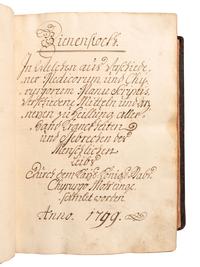 Bienenstock.
In welchen aus verschiede-
ner Medicorum und Chy-
rurgorum Manuscriptis
verschiedene Mitteln und ar-
neyen zu Heillung aller-
hand Kranckheiten
und gebrechen des
Menschlichen
Leibs
Durch dem
Chyrurgo
worden
Anno. 1799.